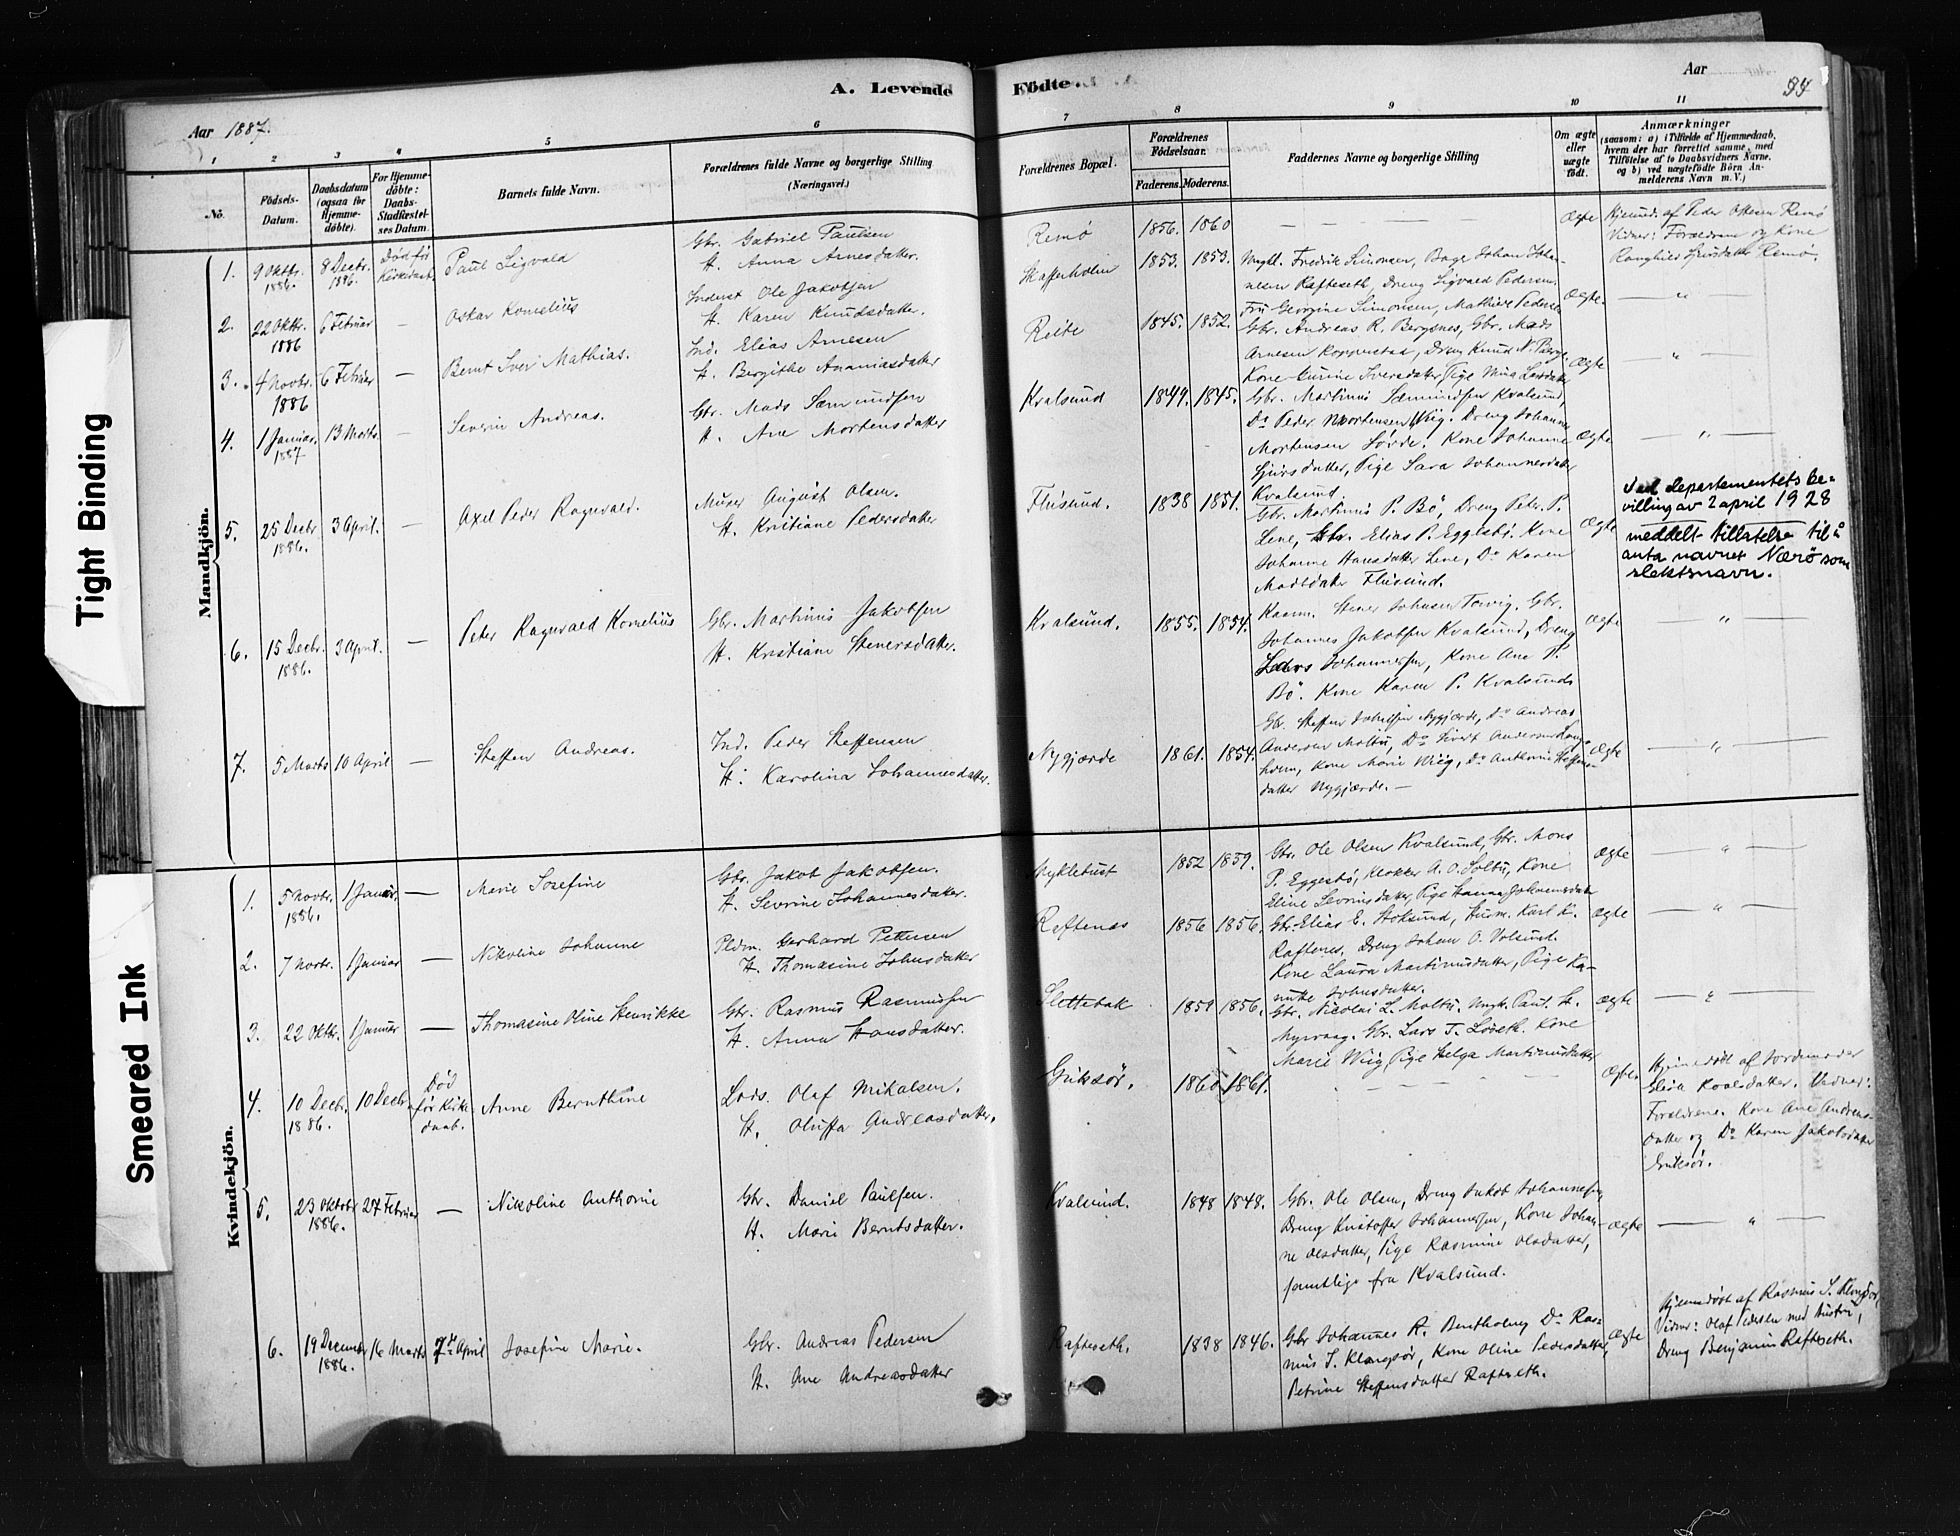 A. Levende Födte.
Aar 1887.
Aar
94
1 2 3 4 5 6 7 8 9 10 11
No.
Födsels-Datum.
Daabsdatum (ogsaa for Hjemme-döbte).
For Hjemme-döbte: Daabs-Stadfæstel-ses Datum.
Barnets fulde Navn.
Forældrenes fulde Navne og borgerlige Stilling (Næringsvei.)
Forældrenes Bopæl.
Forældrenes Födselsaar.
Faderens. Moderens.
Faddernes Navne og borgerlige Stilling
Om ægte eller uægte födt.
Anmærkninger
(saasom: a) i Tilfælde af Hjemmedaab, hvem der har forrettet samme, med Tilföielse af to Daabsvidners Navne, og b) ved uægtefödte Börn Anmelderens Navn m. V.)
Mandkjön.
1. 9 Oktbr. 1886. 8 Decbr. 1886. Død før Kirkedaab Paul Sigvald
Gbr. Gabriel Paulsen
H. Anna Arnesdatter.
Remö 1856. 1860 — — — Ægte
Hjemmed. af Peder Ottesen Remö
Vidner: Forældrene og Kone
Ranghild Sjursdatter Remö.
2. 22 Oktbr. 1886 6 Februar — Oskar Kornelius
Inderst Ole Jakobsen
H. Karen Knudsdatter.
Skafferholm 1853. 1853.
Ungk. Fredrik Simonsen, Bage Johan Johan-
nesen Rafteseth, Dreng Sigvald Pedersen.
Fru Georgine Simonsen, Mathilde Pedersen
Ægte. — " —
3. 4 Novbr. 1886 6 Februar — Bernt Iver Mathias.
Ind. Elias Arnesen
H. Bergithe Ananiasdatter
Reite 1845. 1852.
Gbr. Andreas R. Bergsnes, Gbr. Mads
Arnesen Koppestad, Dreng Knud N. Berge
Kone Gurine Iversdatter, Pige Nina Larsdatter
Ægte — " —
4. 1 Januar. 1887 13 Marts. — Severin Andreas.
Gbr. Mads Sæmundsen
H. Ane Mortensdatter
Kvalsund 1849. 1845.
Gbr. Martinus Sæmundsen Kvalsund,
Do Peder Mortensen Wiig. Dreng Johannes
Mortensen Sørde. Kone Johanne
Sjursdatter, Pige Sara Johannesdatter
Kvalsund.
Ægte — " —
5. 25 Decbr. 1886. 3 April. — Axel Peder Ragnvald.
Murer August Olsen.
H. Kristiane Pedersdatter
Flusund. 1838 1851.
Gbr. Martinus P. Bö, Dreng Peter P.
Lene, Gbr. Elias P. Eggesbö. Kone
Johanne Hansdatter Lene, Do Karen
Madsdatter Flusund.
Ægte
Ved departementets be-
villing av 2 april 1928
meddelt tillatelse til å
anta navnet Nærö som
slektsnavn.
6. 15 Decbr. 1886. 3 April. — Peter Ragnvald Kornelius
Gbr. Martinus Jakobsen
H. Kristiane Stenersdatter.
Kvalsund. 1855. 1854.
Kaarm. Stener Johnsen Torvig. Gbr.
Johannes Jakobsen Kvalsund, Dreng
Lars Johannessen, Kone Ane P.
Bö. Kone Karen P. Kvalsund
Ægte — " —
7. 5 Marts 10 April — Steffen Andreas.
Ind. Peder Steffensen
H. Karolina Johannesdatter.
Nygjærde 1861. 1854.
Gbr. Steffen Johnsen Nygjærde, Do Andreas
Andersen Moltu, Do Sivert Andersen Lang-
holm, Kone Marie Wiig, Do Anthonie Steffens-
datter Nygjærde. —
Ægte — " —
Kvindekjön.
1. 5 Novbr. 1886. 1 Januar. — Marie Josefine
Gbr. Jakob Jakobsen.
H. Severine Johannesdatter.
Myklebust 1852 1859.
Gbr. Ole Olsen Kvalsund, Gbr. Mons
P. Eggesbö, Klokker A. O. Moltu, Kone
Eline Severinsdatter, Pige Hanna Johannesdatter
Ægte — " —
2. 7 Novbr. 1 Januar — Nikoline Johanne
Pldm. Gerhard Pettersen
H. Thomasine Johnsdatter
Raftenæs 1856 1856.
Gbr. Elias E. Stoksund, Husm. Karl K.
Raftenes. Dreng Johan O. Volsund.
Kone Laura Martinusdatter, Pige Ka-
nutte Johnsdatter.
Ægte — " —
3. 22 Oktbr. 1 Januar — Thomasine Oline Henrikke
Gbr. Rasmus Rasmussen
H. Anna Hansdatter.
Slettebak 1859 1856.
Gbr. Nicolai L. Moltu. Ungk. Paul H.
Myrvaag. Gbr. Lars T. Løseth. Kone
Marie Wiig, Pige Helga Martinusdatter
Ægte — " —
4. 10 Decbr. 1886. 10 Decbr. Död för Kirke-daab. Anne Bernthine
Lods. Olaf Mikalsen.
H. Oluffa Andreasdatter.
Gurskør. 1860 1861. — — — Ægte.
Hjemmedöbt af Jordemoder
Elisa Koalsdatter. Vidner:
Forældrene. Kone Ane Andreas-
datter og Do Karen Jakobsdatter
5. 23 Oktobr 1886. 27 Februar — Nikoline Anthonie
Gbr. Daniel Paulsen.
H. Marie Berntsdatter.
Kvalsund. 1848 1848.
Gbr. Ole Olsen, Dreng Jakob Johannesen
Dreng Kristoffer Johannessen, Kone Johan-
ne Olsdatter, Pige Rasmine Olsdatter,
samtlige fra Kvalsund.
Ægte — " —
6. 19 Decembr 1886. 16 Marts 7de April Josefine Marie.
Gbr. Andreas Pedersen
H. Ane Andreasdatter
Rafteseth. 1838 1846.
Gbr Johannes R. Bentholmg Do Ras-
mus S. Klungsör, Kone Oline Pedersdatter,
Petrine Steffensdatter Rafteseth.
Ægte
Hjemmedöbt af Rasmus S. Klungsör,
Vidner: Olaf Pedersen med Hustru,
Dreng Benjamin Rafteseth.
Tight Binding
Smeared Ink